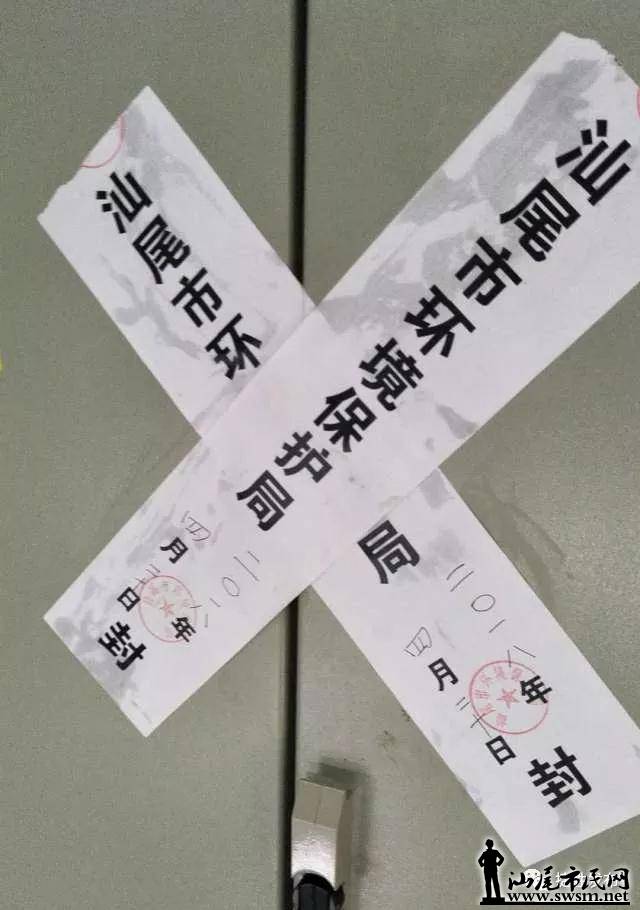 汕尾市环境保护局
二〇一八年
四月二十日
封
汕尾市环
局
二〇一八年
四月二十日
封
汕尾市民网
www.swsm.net